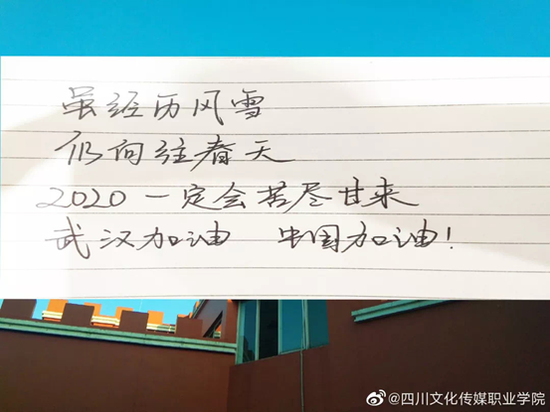 虽经历风雪
仍向往春天
2020 一定会苦尽甘来
武汉加油 中国加油!
@四川文化传媒职业学院